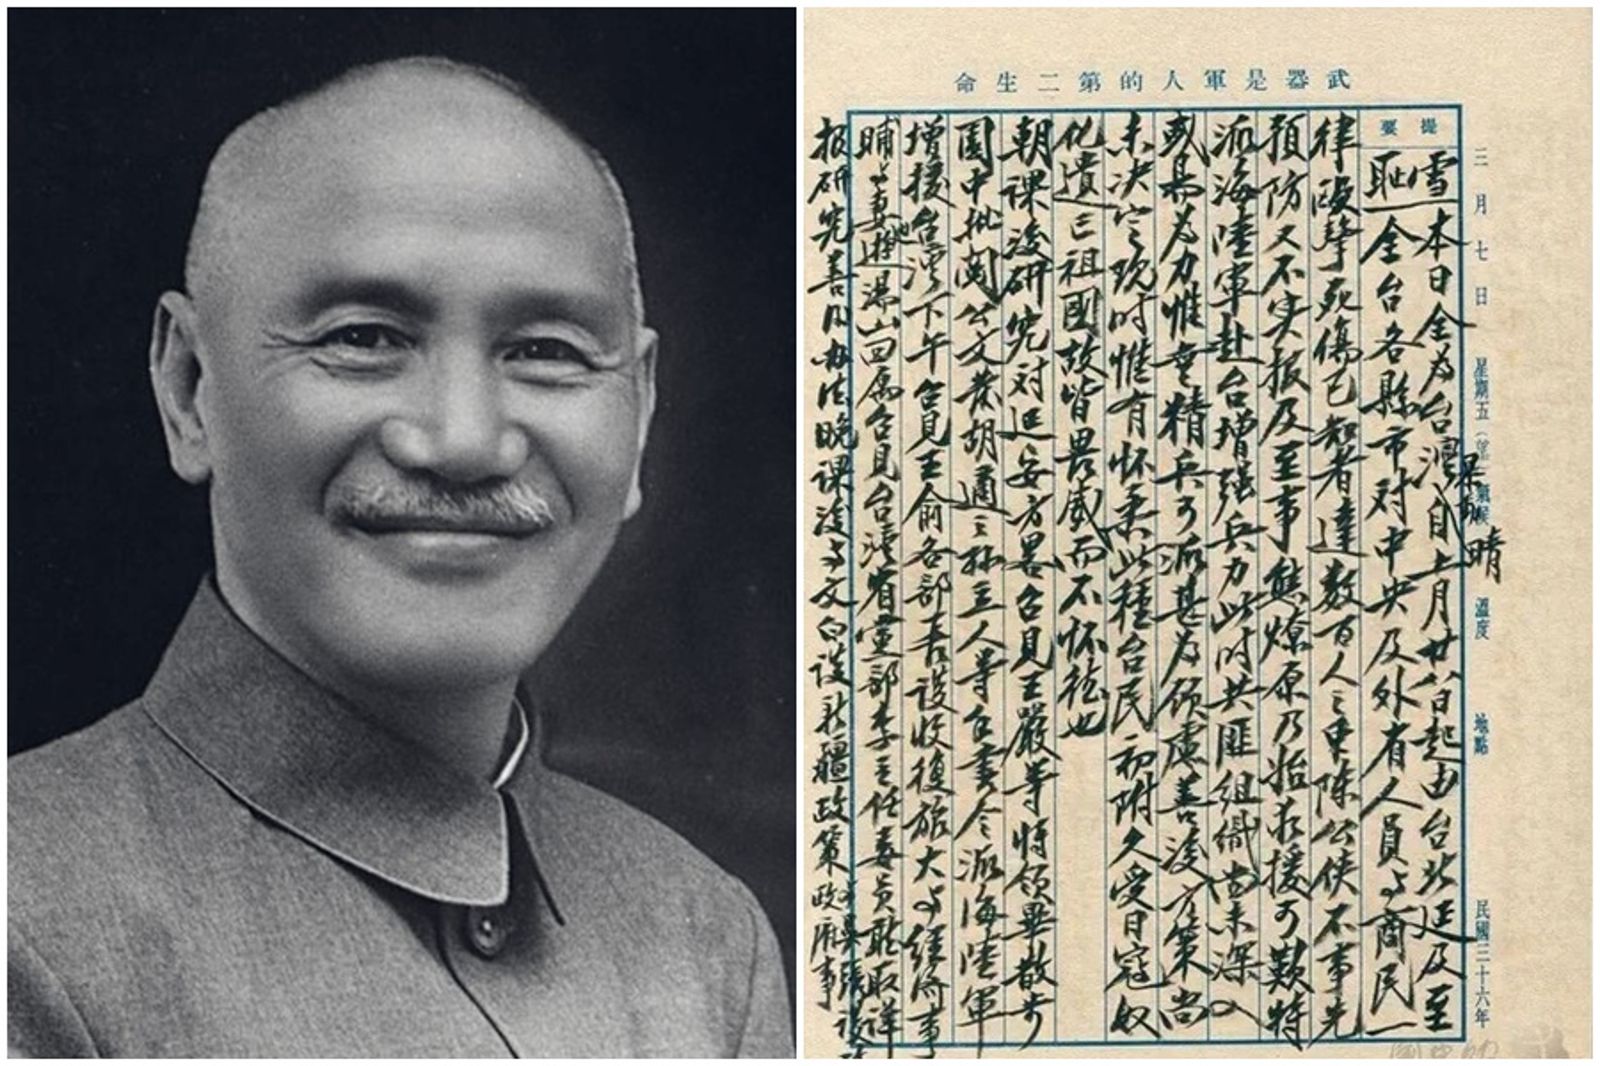 武器是軍人的第二生命
提要
三月七日 星期五 氣候 晴 溫度 地點 民國三十六年
雪恥 本日全為台灣 自上月廿八日起由台北延及至
全台各縣市对中央及外省人員与商民一
律毆擊死傷已知者達數百人之衆陳公俠不事先
預防又不实报及至事態燎原乃始求援可歎特
派海陸軍赴台增强兵力此时共匪組織尚未深入
或易為力惟無精兵可派甚为顧慮善後方策尚
未决定现时惟有怀柔此種台民初附久受日寇奴
化遺忘祖國故皆畏威而不怀德也
朝課後研究对延安方畧召見王嚴等将领畢散步
園中批閱公文发胡適之孙立人等各書令派海陸軍
增援台灣下午召見王俞各部長談收復旅大与经济事
晡与妻遊湯山回寓召見台灣省黨部李主任委員聽取详
报研究善後办法晚課後与文白談新疆政策政府事